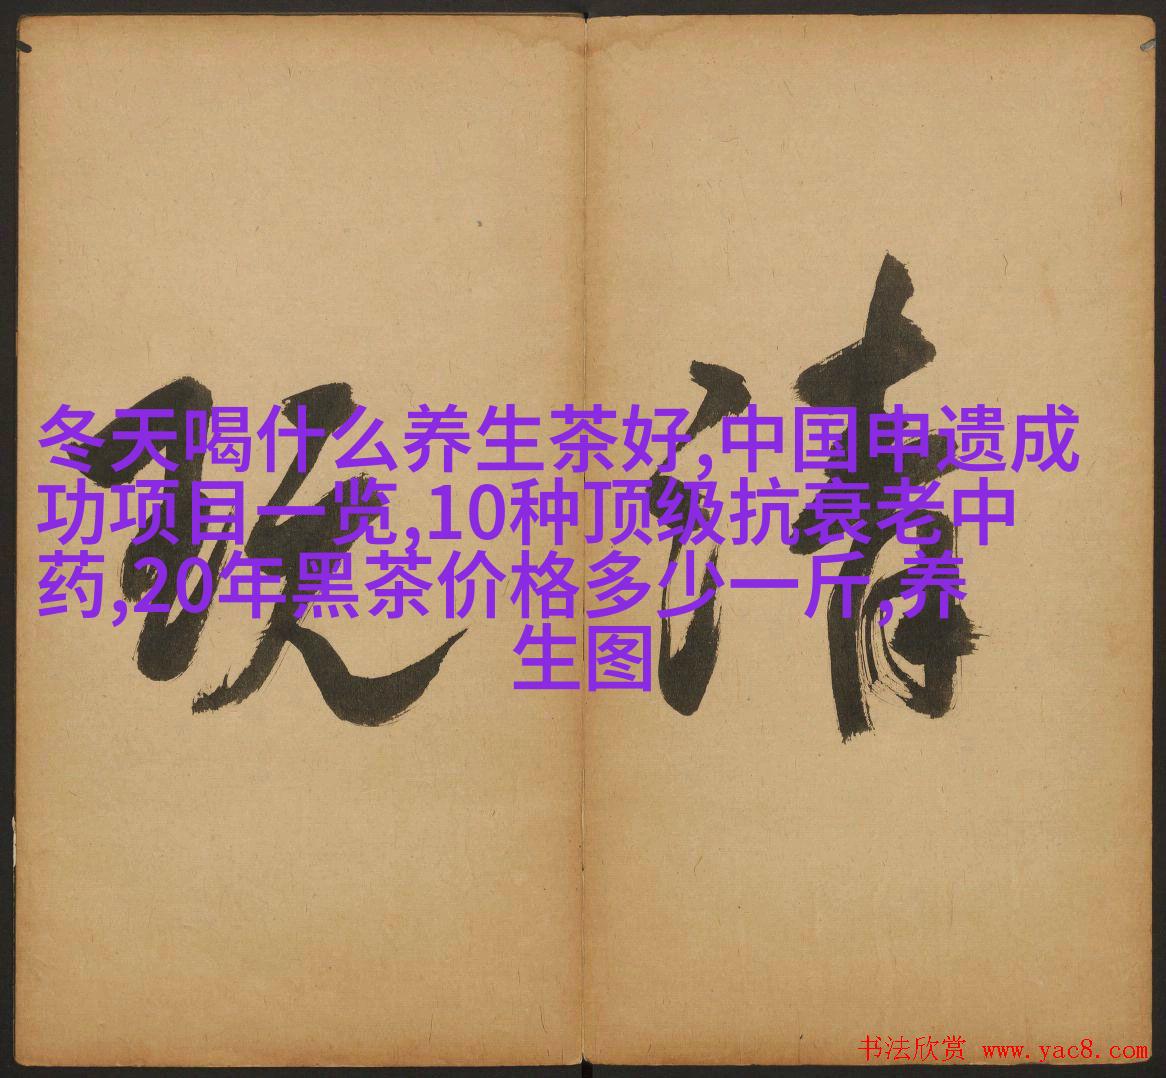 清
玩
冬天喝什么养生茶好,中国申遗成
功项目一览,10种顶级抗衰老中
药,20年黑茶价格多少一斤,养
生图
书法欣赏 www.yac8.com